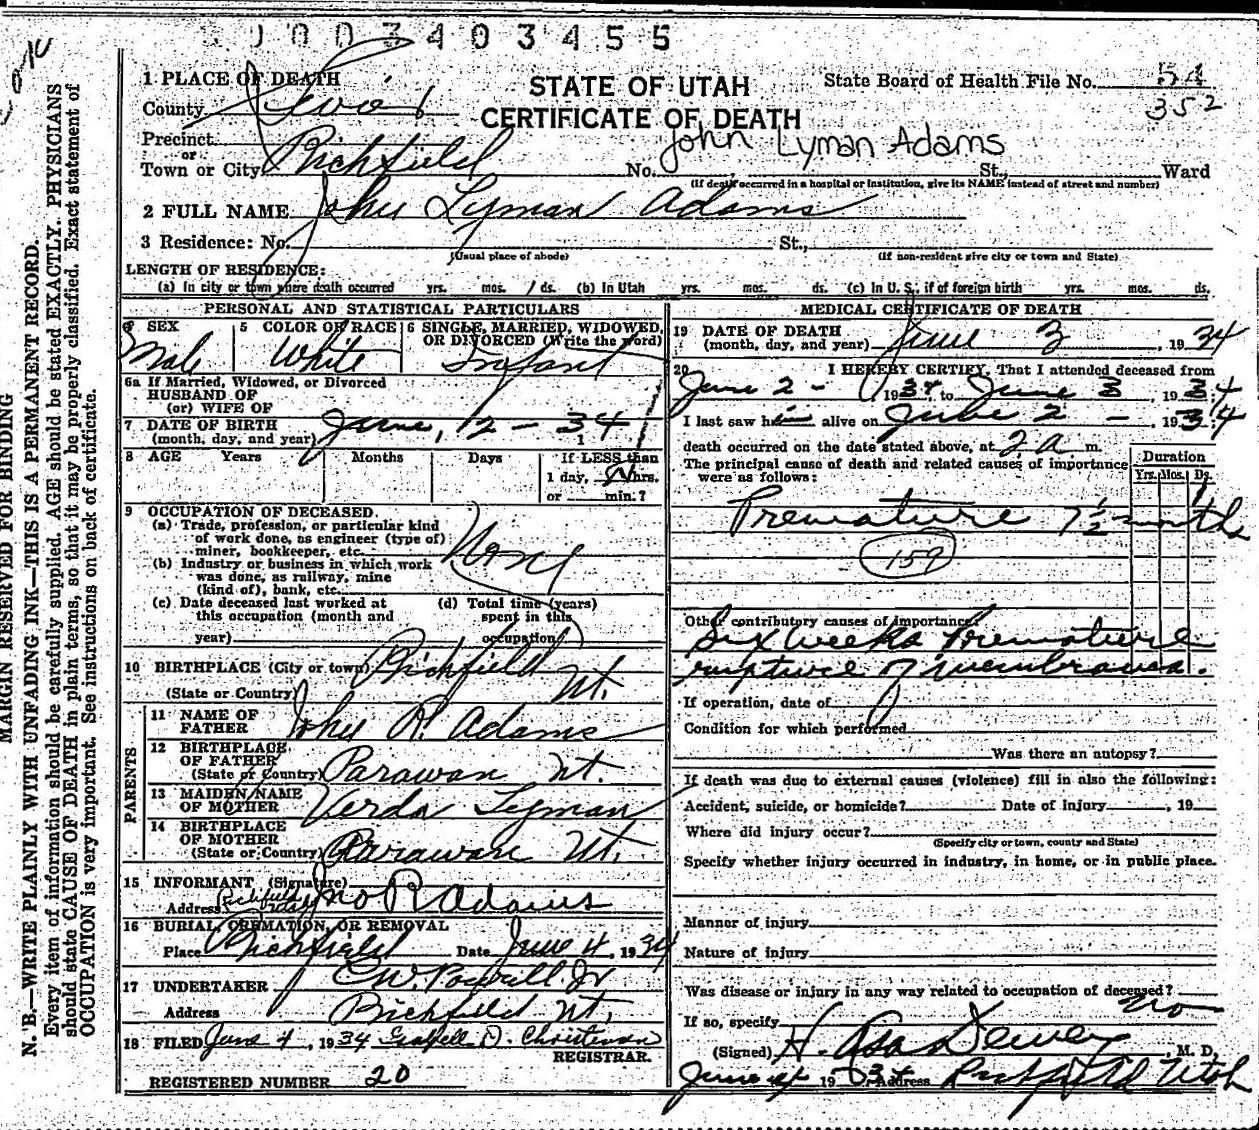 003403455
1 PLACE OF DEATH
STATE OF UTAH
CERTIFICATE OF DEATH
State Board of Health File No. 54
352
County
Precinct
or
Town or City Richfield No. St., Ward
John Lyman Adams
(If death occurred in a hospital or institution, give its NAME instead of street and number)
2 FULL NAME John Lyman Adams
3 Residence: No. St.,
(Usual place of abode) (If non-resident give city or town and State)
LENGTH OF RESIDENCE:
(a) In city or town where death occurred yrs. mos. 1 ds. (b) In Utah yrs. mos. ds. (c) In U. S., if of foreign birth yrs. mos. ds.
PERSONAL AND STATISTICAL PARTICULARS
SEX Male
5 COLOR OR RACE White
6 SINGLE, MARRIED, WIDOWED, OR DIVORCED (Write the word) Infant
6a If Married, Widowed, or Divorced
HUSBAND OF
(or) WIFE OF
7 DATE OF BIRTH
(month, day, and year) June, 2 - 34
8 AGE Years Months Days If LESS than
1 day, hrs.
or min.?
9 OCCUPATION OF DECEASED.
(a) Trade, profession, or particular kind
of work done, as engineer (type of)
miner, bookkeeper, etc. None
(b) Industry or business in which work
was done, as railway, mine
(kind of), bank, etc.
(c) Date deceased last worked at
this occupation (month and
year)
(d) Total time (years)
spent in this
occupation
10 BIRTHPLACE (City or town) Richfield
(State or Country) Ut.
PARENTS
11 NAME OF
FATHER John R. Adams
12 BIRTHPLACE
OF FATHER
(State or Country) Parawan Ut.
13 MAIDEN NAME
OF MOTHER Verda Lyman
14 BIRTHPLACE
OF MOTHER
(State or Country) Parawan Ut.
15 INFORMANT (Signature) Jno R Adams
Address Richfield Utah
16 BURIAL, CREMATION, OR REMOVAL
Place Richfield Date June 4, 1934
17 UNDERTAKER
Address Richfield Ut.
18 FILED June 4, 1934 D. Christensen
REGISTRAR.
REGISTERED NUMBER 20
MEDICAL CERTIFICATE OF DEATH
19 DATE OF DEATH
(month, day, and year) June 3, 1934
20 I HEREBY CERTIFY, That I attended deceased from
June 2 - 1934 to June 3, 1934
I last saw him alive on June 2 - 1934
death occurred on the date stated above, at 2 a m.
The principal cause of death and related causes of importance
were as follows:
Duration
Yrs. Mos. Ds.
1
Premature 7½ month
159
Other contributory causes of importance:
Six weeks Premature
rupture of membranes.
If operation, date of
Condition for which performed
Was there an autopsy?
If death was due to external causes (violence) fill in also the following:
Accident, suicide, or homicide? Date of injury , 19
Where did injury occur?
(Specify city or town, county and State)
Specify whether injury occurred in industry, in home, or in public place.
Manner of injury
Nature of injury
Was disease or injury in any way related to occupation of deceased? no
If so, specify
(Signed) H. Asa Dewey, M. D.
June 4 1934 Address Richfield Utah
MARGIN RESERVED FOR BINDING
N. B.—WRITE PLAINLY WITH UNFADING INK—THIS IS A PERMANENT RECORD.
Every item of information should be carefully supplied. AGE should be stated EXACTLY. PHYSICIANS
should state CAUSE OF DEATH in plain terms, so that it may be properly classified. Exact statement of
OCCUPATION is very important. See instructions on back of certificate.